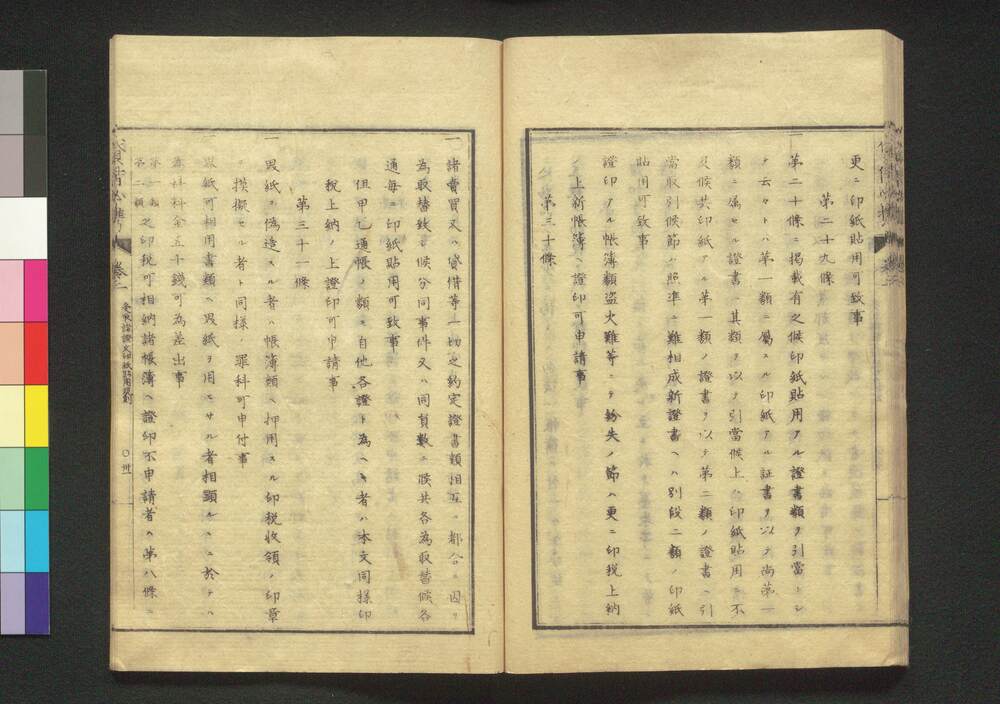 更ニ印紙貼用可致事
第二十九條
一第二十條ニ掲載有之候印紙貼用スル證書類ヲ引當トシ
テ云々トハ第一類ニ屬スル印紙アル証書ヲ以テ尚第一
類ニ属セル證書ノ其類ヲ以テ引當候上ハ印紙貼用ニ不
及候共印紙アル第一類ノ證書ヲ以テ第二類ノ證書ヘ引
當取引候節ハ照準シ難相成新證書ヘハ別段二類ノ印紙
貼用可致事
證印アル帳簿類盗火難等ニテ紛失ノ節ハ更ニ印税上納
ノ上新帳簿ヘ證印可申請事
第三十條
一諸賣買又ハ貸借等一切之約定證書類相互ノ都合ニ因テ
為取替致シ候分同事件又ハ同員數ニ候共各為取替候各
通毎ニ印紙貼用可致事
但甲乙通帳ノ類ニ自他各證ト為ヘキ者ハ本文同様印
税上納ノ上證印可申請事
第三十一條
一毀紙ヲ偽造スル者ハ帳簿類ヘ押用スル印税收領ノ印章
ヲ摸擬セル者ト同様ノ罪科可申付事
毀紙可相用書類ヘ毀紙ヲ用ヒサル者相顕ルヽニ於テハ
科料金五十錢可為差出事
第二類之印税可相納諸帳簿ヘ證印不申請者ハ第八條ニ
卷二
受取諸證文印紙貼用規則
〇卅